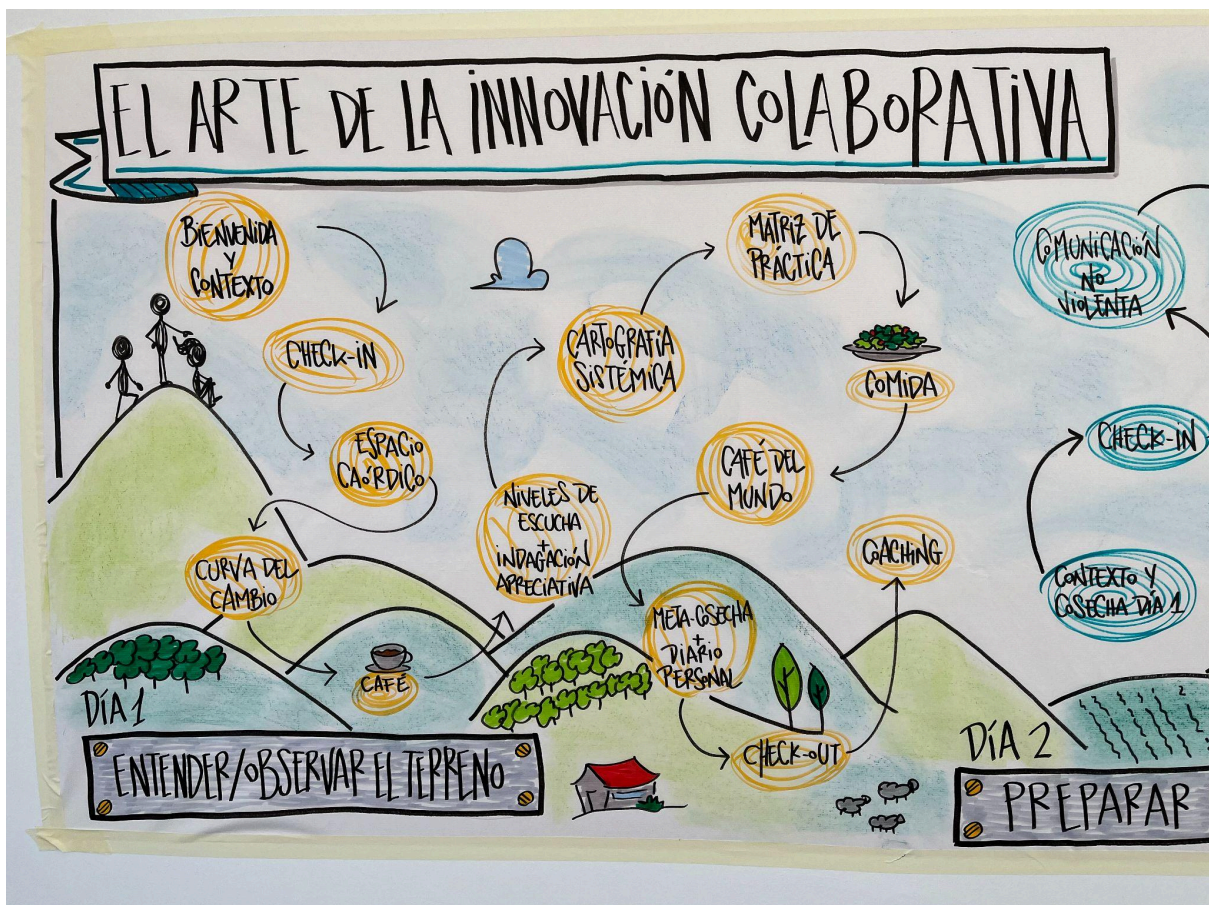 EL ARTE DE LA INNOVACIÓN COLABORATIVA
BIENVENIDA
Y
CONTEXTO
CHECK-IN
ESPACIO
CAÓRDICO
CURVA DEL
CAMBIO
CAFÉ
NIVELES DE
ESCUCHA
+
INDAGACIÓN
APRECIATIVA
CARTOGRAFÍA
SISTÉMICA
MATRIZ DE
PRÁCTICA
COMIDA
CAFÉ DEL
MUNDO
META-COSECHA
+
DIARIO
PERSONAL
CHECK-OUT
COACHING
DÍA 1
ENTENDER/OBSERVAR EL TERRENO
CONTEXTO Y
COSECHA DÍA 1
CHECK-IN
COMUNICACIÓN
NO
VIOLENTA
DÍA 2
PREPARAR